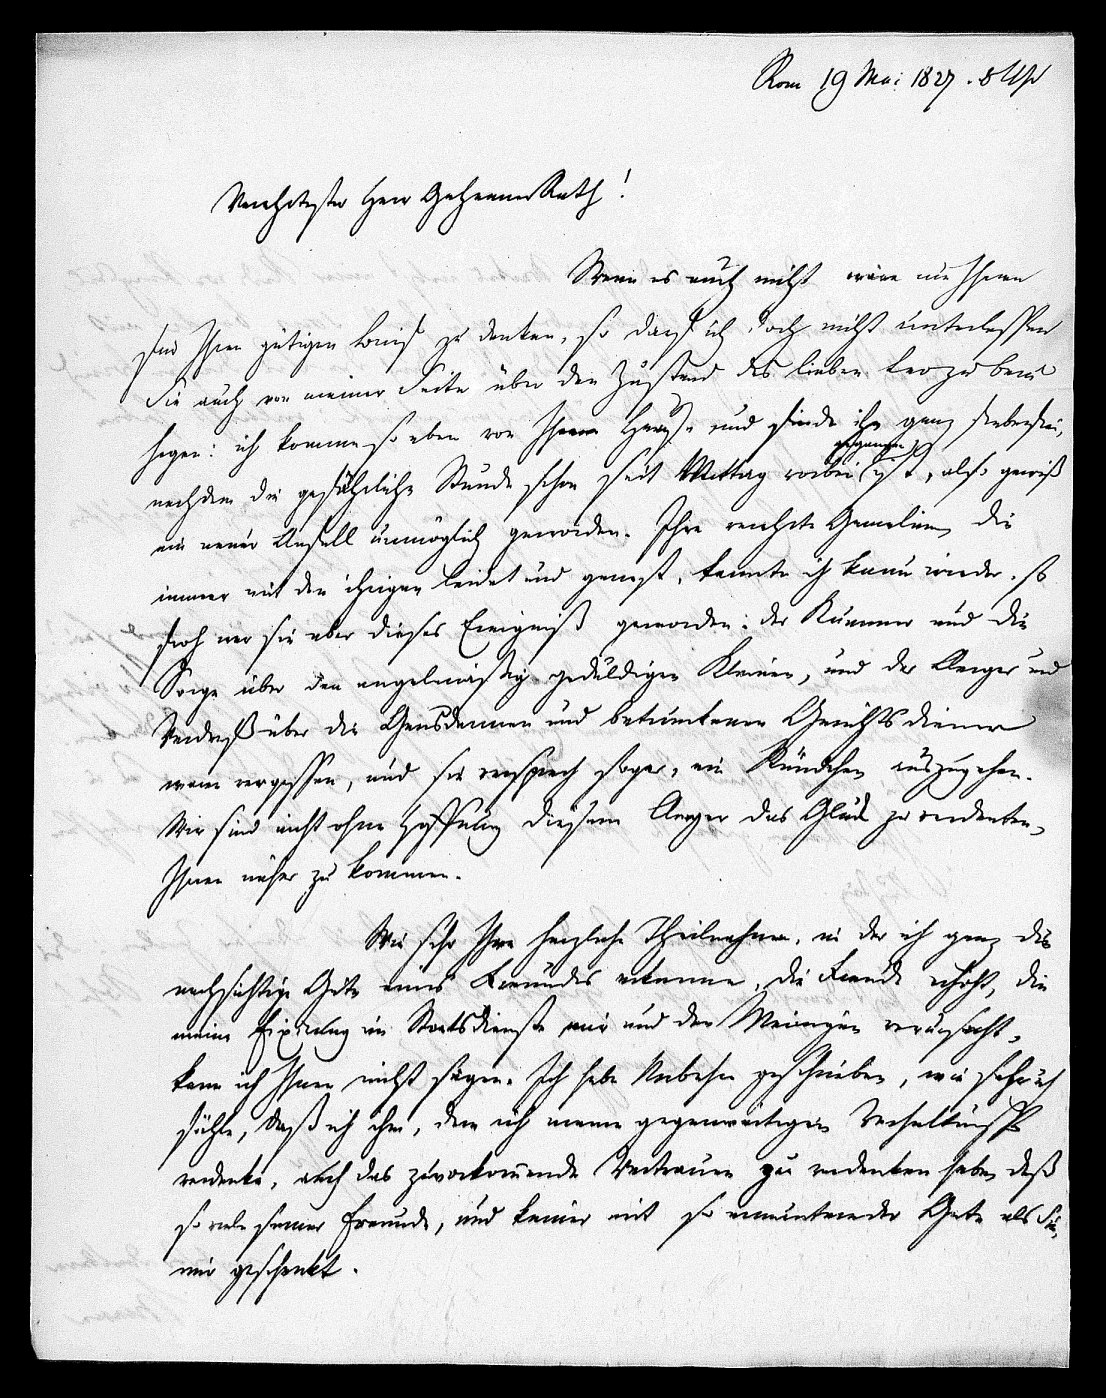 Rom 19 Mai 1827. 8 Uhr
Verehrtester Herr GeheimerRath!
Wenn es auch nicht wäre um Ihnen
für Ihren gütigen Brief zu danken, so darf ich doch nicht unterlassen
Sie auch von meiner Seite über den Zustand des lieben Leo zu beru
higen: ich komme so eben von Ihrem Hause und finde ihn ganz fieberfrei,
nachdem die gefährliche Stunde schon seit Mittag vorbei gegangen ist, also gewiß
ein neuer Anfall unmöglich geworden. Ihre verehrte Gemalin, die
immer mit den ihrigen leidet und genest, kannte ich kaum wieder, so
froh war sie über dieses Ereigniß geworden: der Kummer und die
Sorge über den engelmäßig geduldigen Kleinen, und der Aerger und
Verdruß über die Gensdarmen und betrunkenen Gerichtsdiener
waren vergessen, und sie versprach sogar, ein Stündchen auszugehen.
Wir sind nicht ohne Hoffnung diesem Aerger das Glück zu verdanken,
Ihnen näher zu kommen.
Wie sehr Ihre herzliche Theilnahme, in der ich ganz die
nachsichtige Güte eines Freundes erkenne, die Freude erhöht, die
meine Fixirung im Staatsdienste mir und den Meinigen verursacht,
kann ich Ihnen nicht sagen. Ich habe Niebuhr geschrieben, wie sehr ich
fühle, daß ich ihm, dem ich meine gegenwärtigen Verhältnisse
verdanke, auch das zuvorkommende Vertrauen zu verdanken habe, daß
so viele seiner Freunde, und keiner mit so ermunternder Güte als Sie,
mir geschenkt.